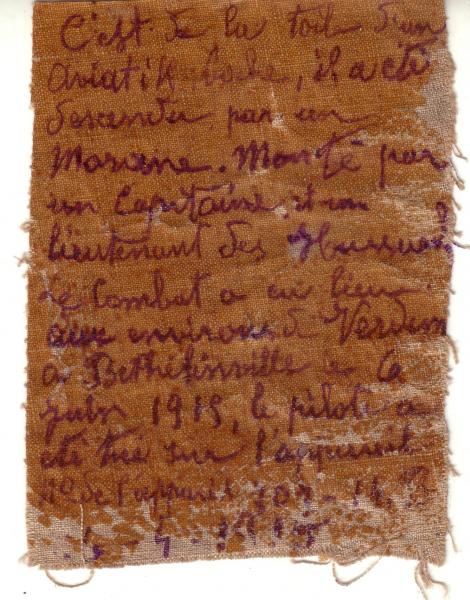 C'est de la toile d'un
aviatik boche, il a été
descendu par un
Morane. Monté par
un Capitaine et un
lieutenant des Hussards
Le Combat a eu lieu
aux environs de Verdun
a Béthelinville le 6
juin 1915, le pilote a
été tué sur l'appareil
No de l'appareil 107 - 14
- 4 - 1915